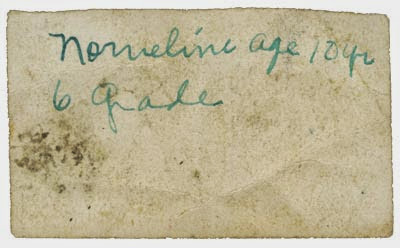 Nomeline age 10yr
6 Grade